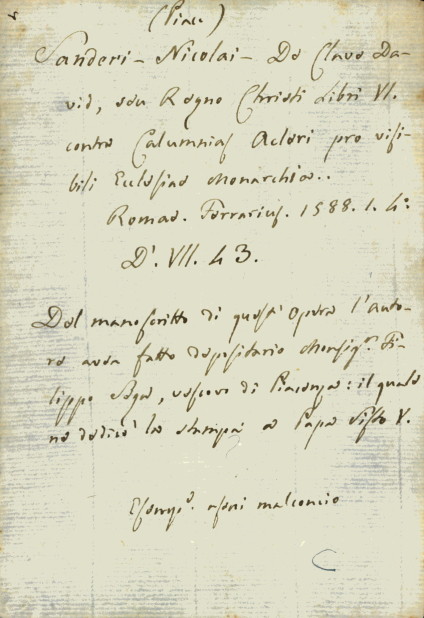 (Piac.)
Sanderi - Nicolai - De Clave Da-
vid, seu Regno Christi Libri VI.
contra Calumnias Acleri pro visi-
bili Ecclesiae Monarchia..
Romae. Ferrarius. 1588. 1. 4°.
D'. VII. 43.
Del manoscritto di quest' opera l'auto-
re avea fatto depositario Monsig.r Fi-
lippo Sega, vescovo di Piacenza: il quale
ne dedicò la stampa a Papa Sisto V.
malconcio